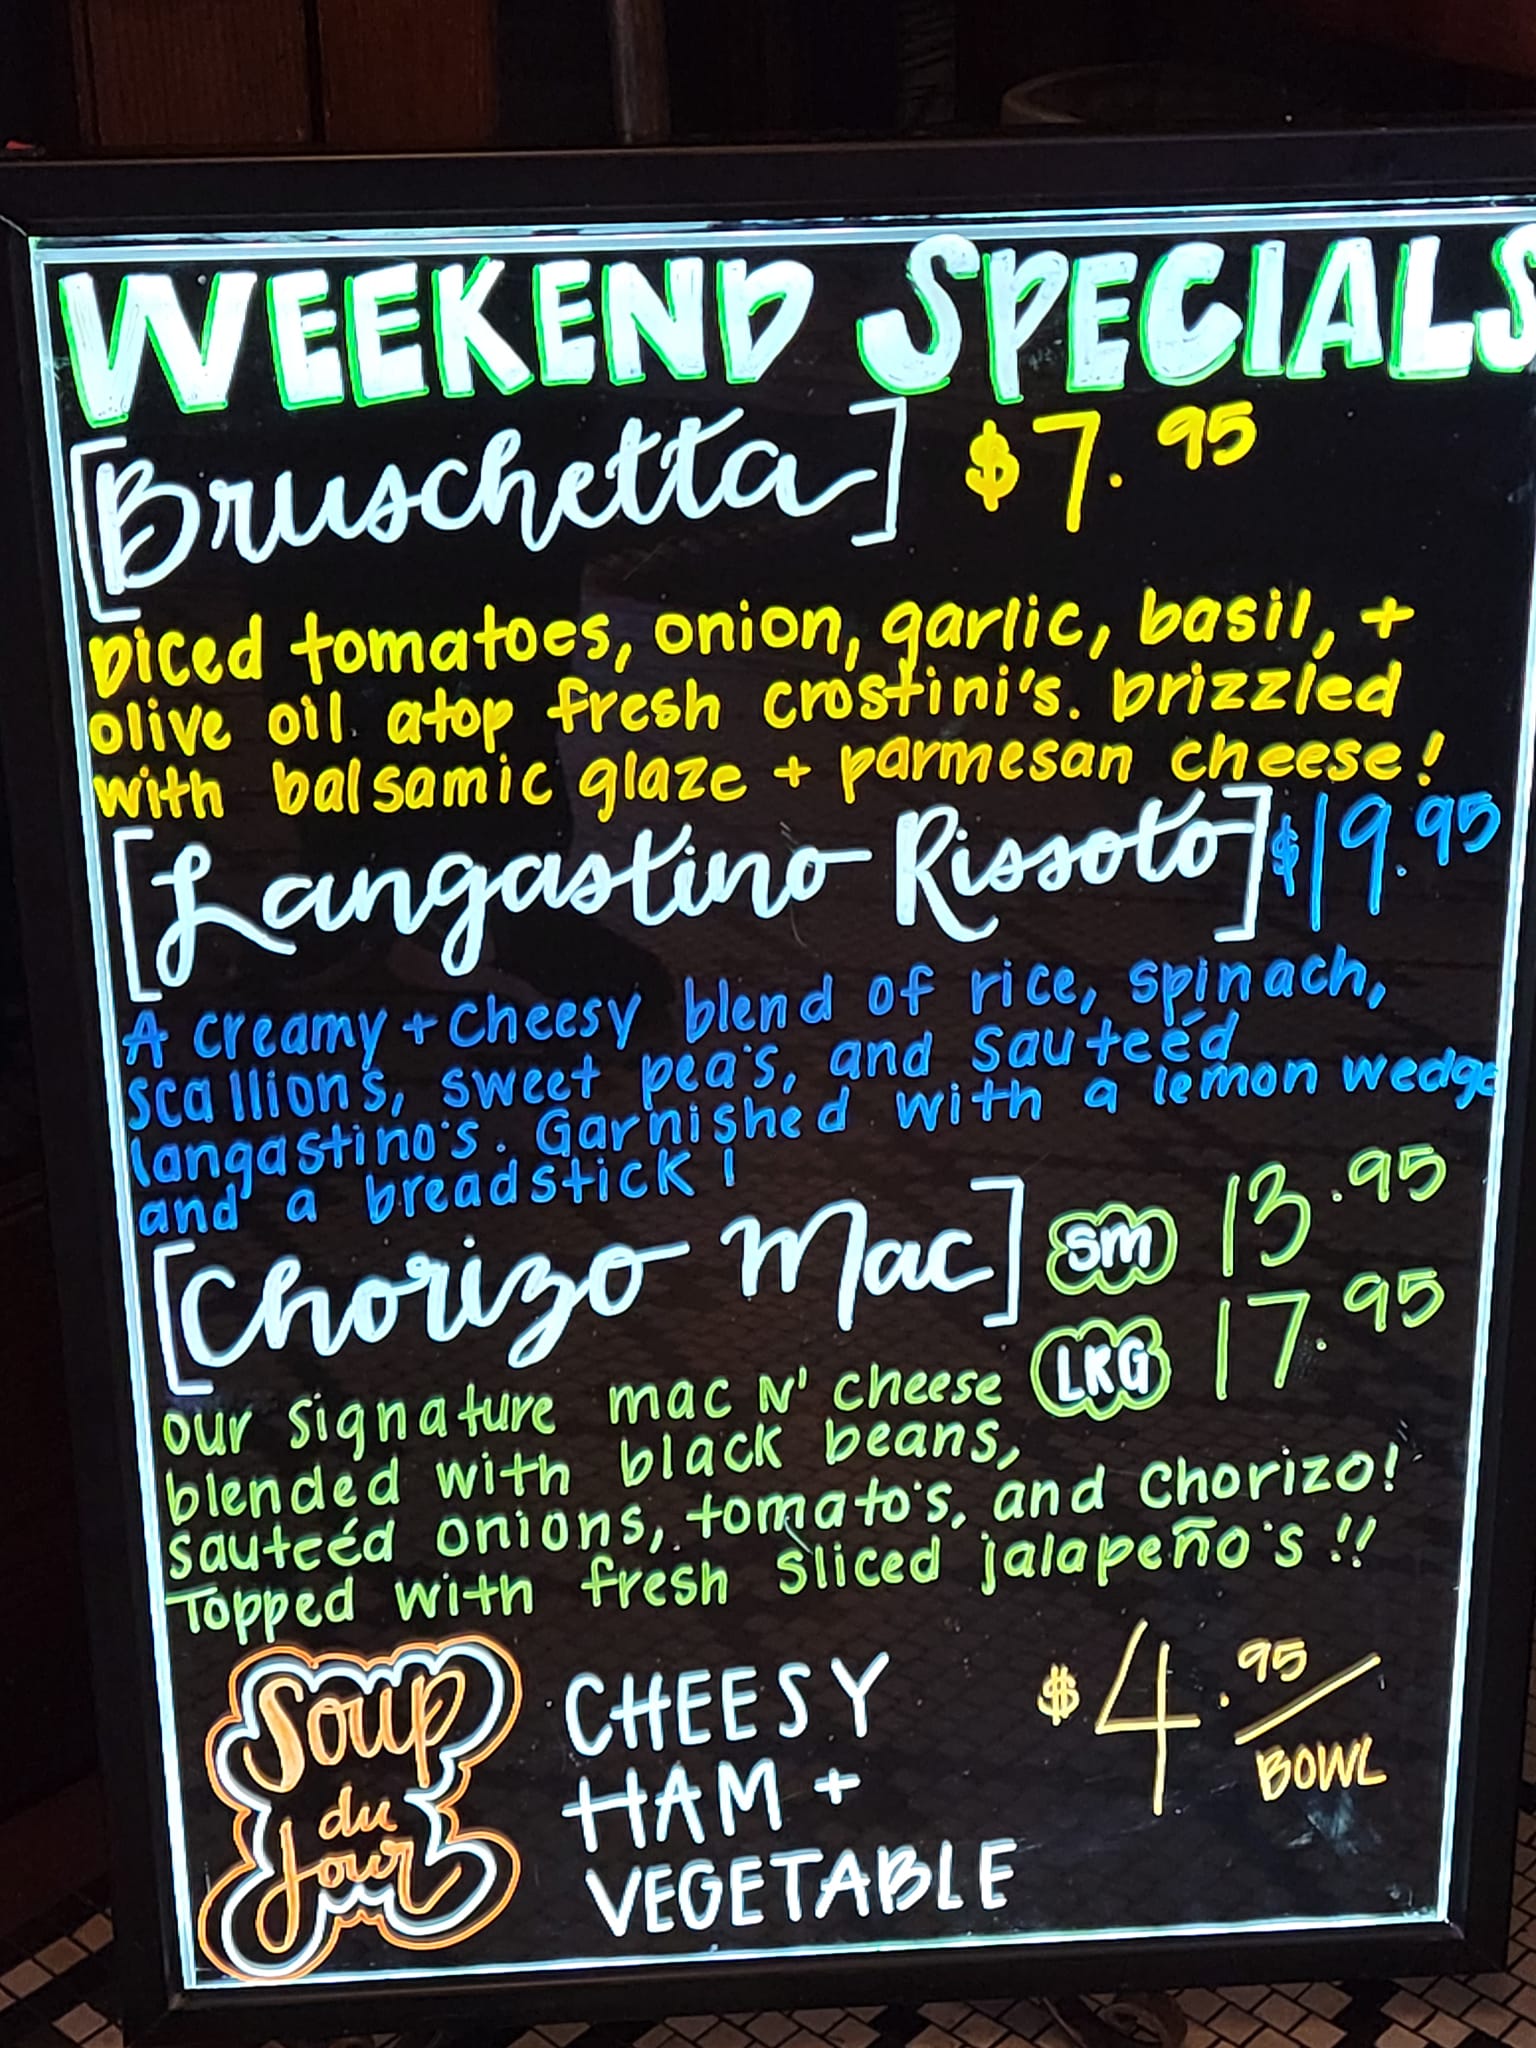 WEEKEND SPECIALS
[Bruschetta] $7.95
Diced tomatoes, onion, garlic, basil, +
olive oil. atop fresh crostini's. Drizzled
with balsamic glaze + parmesan cheese!
[Langastino Rissoto] $19.95
A creamy + cheesy blend of rice, spinach,
scallions, sweet pea's, and sauteéd
langastino's. Garnished with a lemon wedge
and a breadstick!
[Chorizo Mac] SM 13.95
LRG 17.95
our signature mac N' cheese
blended with black beans,
sauteéd onions, tomato's, and chorizo!
Topped with fresh sliced jalapeño's!!
Soup
du
Jour
CHEESY
HAM +
VEGETABLE
$4.95/
BOWL